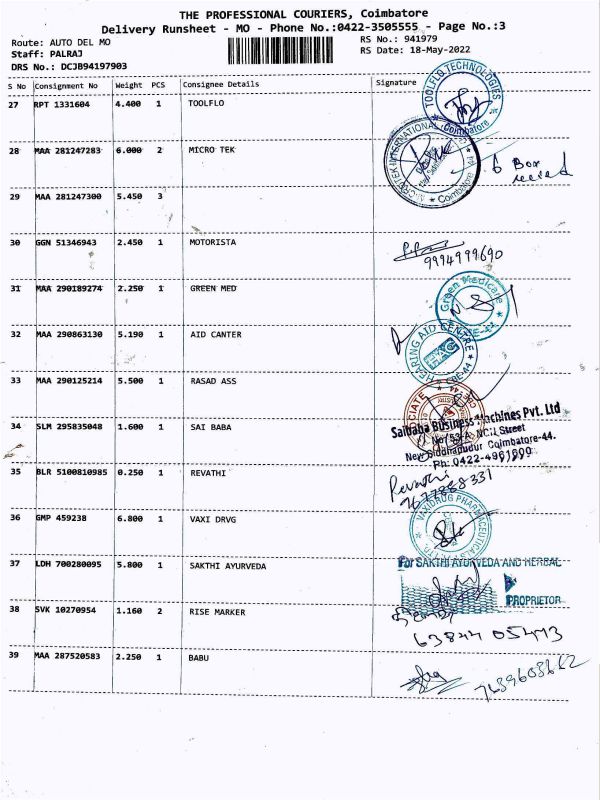 THE PROFESSIONAL COURIERS, Coimbatore
Delivery Runsheet - MO - Phone No.:0422-3505555 - Page No.:3
Route: AUTO DEL MO
RS No.: 941979
Staff: PALRAJ
RS Date: 18-May-2022
DRS No.: DCJB94197903
S No Consignment No Weight PCS Consignee Details Signature
27 RPT 1331604 4.400 1 TOOLFLO
TOOLFLO TECHNOLOGIES
Coimbatore
28 MAA 281247283 6.000 2 MICRO TEK
INTERNATIONAL
Coimbatore
6 Box
29 MAA 281247300 5.450 3
30 GGN 51346943 2.450 1 MOTORISTA
9994999690
31 MAA 290189274 2.250 1 GREEN MED
Green Medicare
CBE-44
32 MAA 290863130 5.190 1 AID CANTER
HEARING AID CENTRE
CBE-44
33 MAA 290125214 5.500 1 RASAD ASS
34 SLM 295835048 1.600 1 SAI BABA
Saibaba Business Machines Pvt. Ltd
No 53-A, NCH Street
New Siddhapudur Coimbatore-44.
Ph: 0422-4961600
35 BLR 5100810985 0.250 1 REVATHI
Revathi
7677888331
36 GMP 459238 6.800 1 VAXI DRVG
VAXIDRUG PHARMACEUTICALS
37 LDH 700280095 5.800 1 SAKTHI AYURVEDA
For SAKTHI AYURVEDA AND HERBAL
PROPRIETOR
38 SVK 10270954 1.160 2 RISE MARKER
63844 05473
39 MAA 287520583 2.250 1 BABU
7639608662